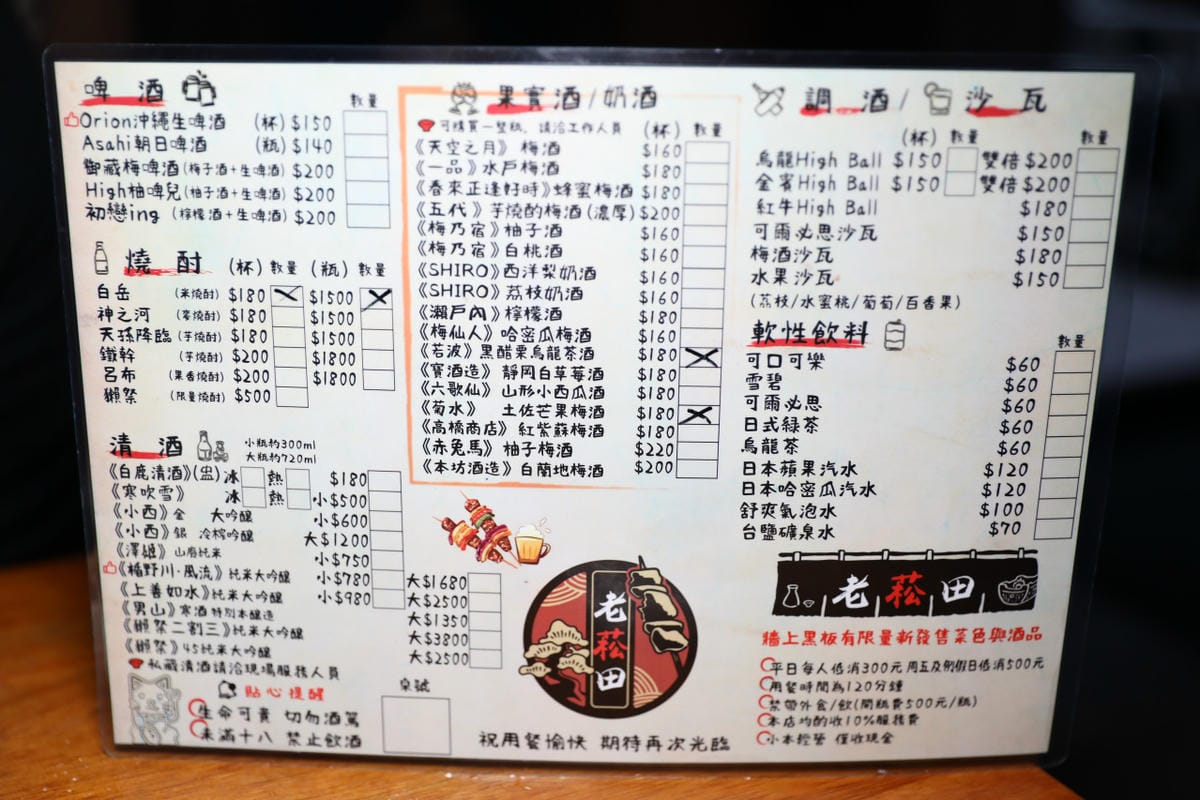 啤 酒
數量
Orion沖繩生啤酒 (杯) $150
Asahi朝日啤酒 (瓶) $140
御藏梅啤酒(梅子酒+生啤酒) $200
High柚啤兒(柚子酒+生啤酒) $200
初戀ing (檸檬酒+生啤酒) $200
燒 酎 (杯) 數量 (瓶) 數量
白岳 (米燒酎) $180 $1500
神之河 (麥燒酎) $180 $1500
天孫降臨 (芋燒酎) $180 $1500
鐵幹 (芋燒酎) $200 $1800
呂布 (果香燒酎) $200 $1800
獺祭 (限量燒酎) $500
清 酒
小瓶約300ml
大瓶約720ml
《白鹿清酒》(盅) 冰 熱 $180
《寒吹雪》 冰 熱 小$500
《小西》金 大吟釀 小$600
《小西》銀 冷榨吟釀 大$1200
《澤姬》山廢純米 小$750
《楯野川·風流》純米大吟釀 小$780 大$1680
《上善如水》純米大吟釀 小$980 大$2500
《男山》寒酒 特別本釀造 大$1350
《獺祭二割三》純米大吟釀 大$3800
《獺祭》45純米大吟釀 大$2500
私藏清酒請洽現場服務人員
貼心提醒
生命可貴 切勿酒駕
未滿十八 禁止飲酒
桌號
果實酒/奶酒
可購買一整瓶,請洽工作人員 (杯) 數量
《天空之月》 梅酒 $160
《一品》水戶梅酒 $180
《春來正逢好時》蜂蜜梅酒 $180
《五代》芋燒酌梅酒(濃厚) $200
《梅乃宿》柚子酒 $160
《梅乃宿》白桃酒 $160
《SHIRO》西洋梨奶酒 $160
《SHIRO》荔枝奶酒 $160
《瀨戶內》檸檬酒 $180
《梅仙人》哈密瓜梅酒 $160
《若波》黑醋栗烏龍茶酒 $180
《寶酒造》靜岡白草莓酒 $180
《六歌仙》山形小西瓜酒 $180
《菊水》 土佐芒果梅酒 $180
《高橋商店》紅紫蘇梅酒 $180
《赤兔馬》柚子梅酒 $220
《本坊酒造》白蘭地梅酒 $200
老菘田
祝用餐愉快 期待再次光臨
調 酒/ 沙 瓦
(杯) 數量 數量
烏龍High Ball $150 雙倍$200
金賓High Ball $150 雙倍$200
紅牛High Ball $180
可爾必思沙瓦 $150
梅酒沙瓦 $180
水果沙瓦 $150
(荔枝/水蜜桃/葡萄/百香果)
軟性飲料
數量
可口可樂 $60
雪碧 $60
可爾必思 $60
日式綠茶 $60
烏龍茶 $60
日本蘋果汽水 $120
日本哈密瓜汽水 $120
舒爽氣泡水 $100
台鹽礦泉水 $70
老菘田
牆上黑板有限量新發售菜色與酒品
平日每人低消300元 周五及例假日低消500元
用餐時間為120分鐘
禁帶外食/飲(開瓶費500元/瓶)
本店均酌收10%服務費
小本經營 僅收現金